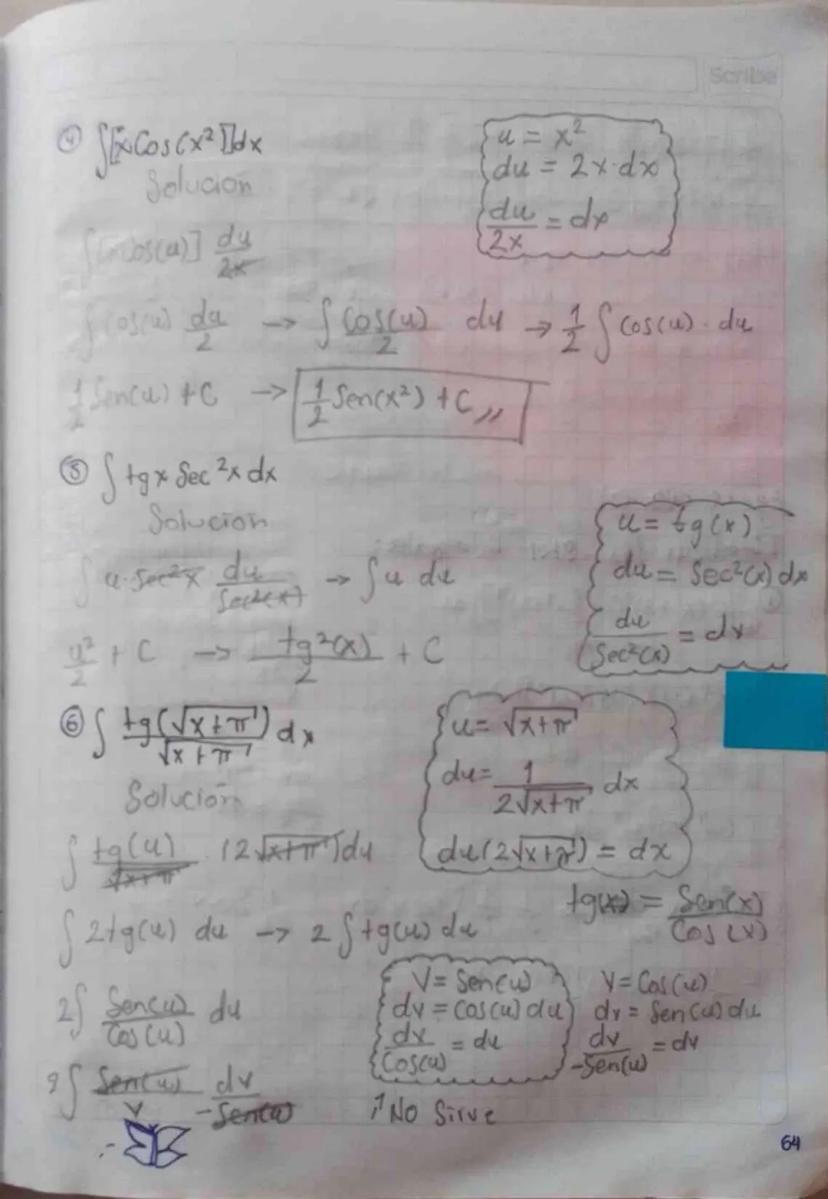 Scribe
④ ∫[xCos(x²)]dx
Solución
u = x²
du = 2x·dx
du/2x = dx
∫[xCos(u)] du/2x
∫Cos(u) du/2 → ∫ Cos(u)/2 du → 1/2 ∫ Cos(u)·du
1/2 Sen(u) + C → 1/2 Sen(x²) + C,,
⑤ ∫ tgx Sec²x dx
Solución
u = tg(x)
du = Sec²(x) dx
du/Sec²(x) = dx
∫ u·Sec²x du/Sec²(x) → ∫u du
u²/2 + C → tg²(x)/2 + C
⑥ ∫ tg(√x+π)/√x+π dx
Solución
u = √x+π
du = 1/2√x+π dx
du(2√x+π) = dx
∫ tg(u)/√x+π (2√x+π)du
tg(x) = Sen(x)/Cos(x)
∫ 2tg(u) du → 2∫tg(u) du
2∫ Sen(u)/Cos(u) du
V = Sen(u)
dv = Cos(u) du
dv/Cos(u) = du
V = Cos(u)
dv = Sen(u) du
dv/-Sen(u) = dv
2∫ Sen(u)/V dv/-Sen(u)
↑No Sirve
64